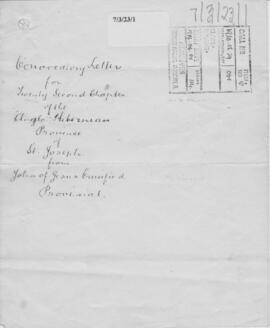 7/3/23/1
7/3/23/1
Convocatory Letter
for
Twenty Second Chapter
of the
Anglo-Hibernian
Province
of
St. Joseph
from
John of Jesus Crucified
Provincial.